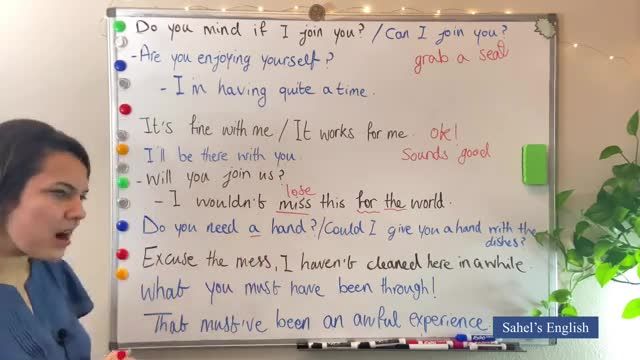 Do you mind if I join you? / Can I join you?
- Are you enjoying yourself? grab a seat
- I'm having quite a time.
It's fine with me / It works for me. ok!
I'll be there with you. Sounds good
- Will you join us?
lose
- I wouldn't miss this for the world.
Do you need a hand? / Could I give you a hand with the
dishes?
Excuse the mess, I haven't cleaned here in a while.
What you must have been through!
That must've been an awful experience.
Sahel's English